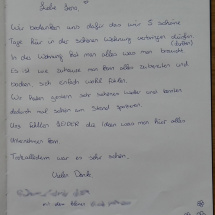 Liebe Fam.
Wir bedanken uns dafür das wir 5 schöne
Tage hier in der schönen Wohnung verbringen dürfen.
(durften)
In der Wohnung hat man alles was man braucht
Es ist wie zuhause man kann alles zubereiten und
sich einfach wohl fühlen.
Wir hatten sehr schönes Wetter und konnten
dadurch auch am Strand spazieren.
Uns fehlen leider die Ideen was man hier alles
Unternehmen kann.
Trotzalledem war es sehr schön.
Vielen Dank